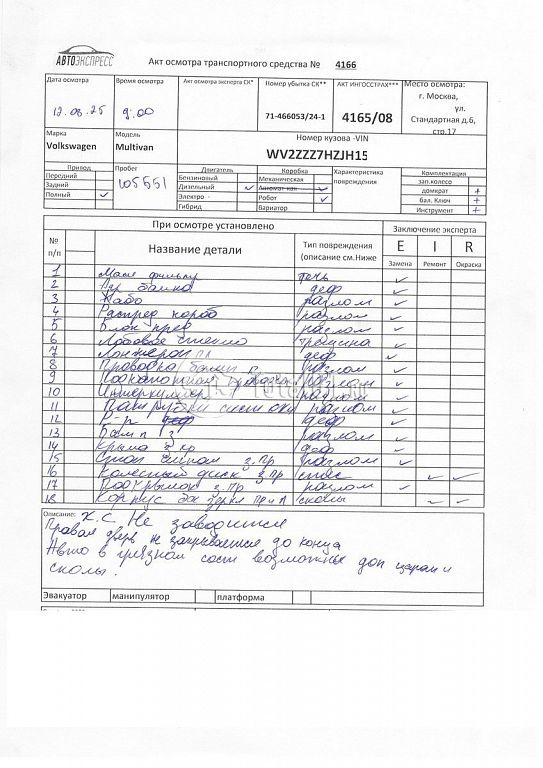 АВТОЭКСПРЕСС
Акт осмотра транспортного средства № 4166
Дата осмотра Время осмотра Акт осмотра эксперта СК* Номер убытка СК** АКТ ИНГОССТРАХ*** Место осмотра:
г. Москва,
ул.
Стандартная д.6,
стр.17
12.08.25 9:00 71-466053/24-1 4165/08
Марка Модель Номер кузова -VIN
Volkswagen Multivan WV2ZZZ7HZJH15
Привод Пробег Двигатель Коробка Характеристика повреждения Комплектация
Передний Бензиновый Механическая зап.колесо
Задний 105551 Дизельный ✓ Автомат-кая домкрат +
Полный ✓ Электро Робот ✓ бал. Ключ +
Гибрид вариатор Инструмент +
При осмотре установлено Заключение эксперта
№ п/п Название детали Тип повреждения (описание см.Ниже E I R
Замена Ремонт Окраска
1 Масл фильтр течь ✓
2 деф ✓
3 разлом ✓
4 Распред короб разлом ✓
5 Блок пред разлом ✓
6 Лобовое стекло трещина ✓
7 Лонжерон пл деф ✓
8 Проводка разлом ✓
9 разлом ✓
10 Интеркулер разлом ✓
11 Патрубки разлом ✓
12 деф ✓
13 Бамп з разлом ✓
14 Крыло з пр деф ✓
15 з. пр разлом ✓
16 Колесный диск з пр ✓ ✓
17 Подкрылок з. Пр разлом ✓
18 Корпус эл зерк Пр и Л сколы ✓ ✓
Описание: Х.С. Не заводится
Правая дверь не закрывается до конца
Авто в грязном сост возможны доп царап и
сколы.
Эвакуатор манипулятор платформа